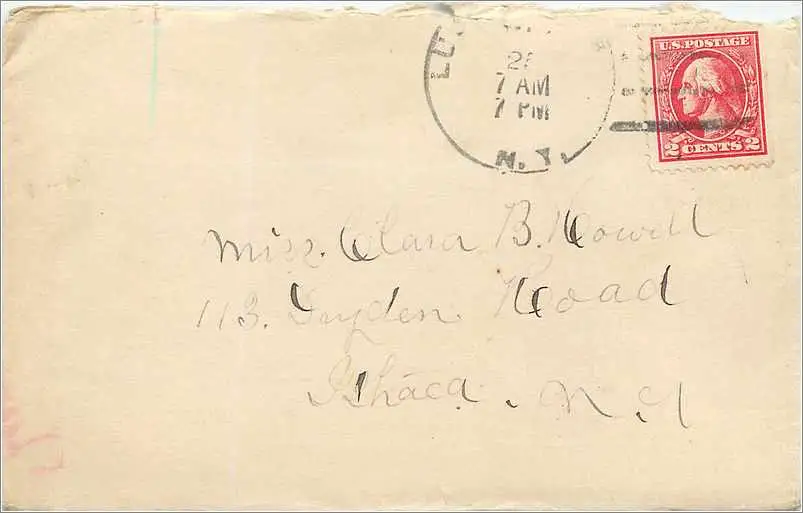 U.S. POSTAGE
2 CENTS 2
7 AM
7 PM
N.Y.
Miss. Clara B. Howell
113. Dryden Road
Ithaca. N Y